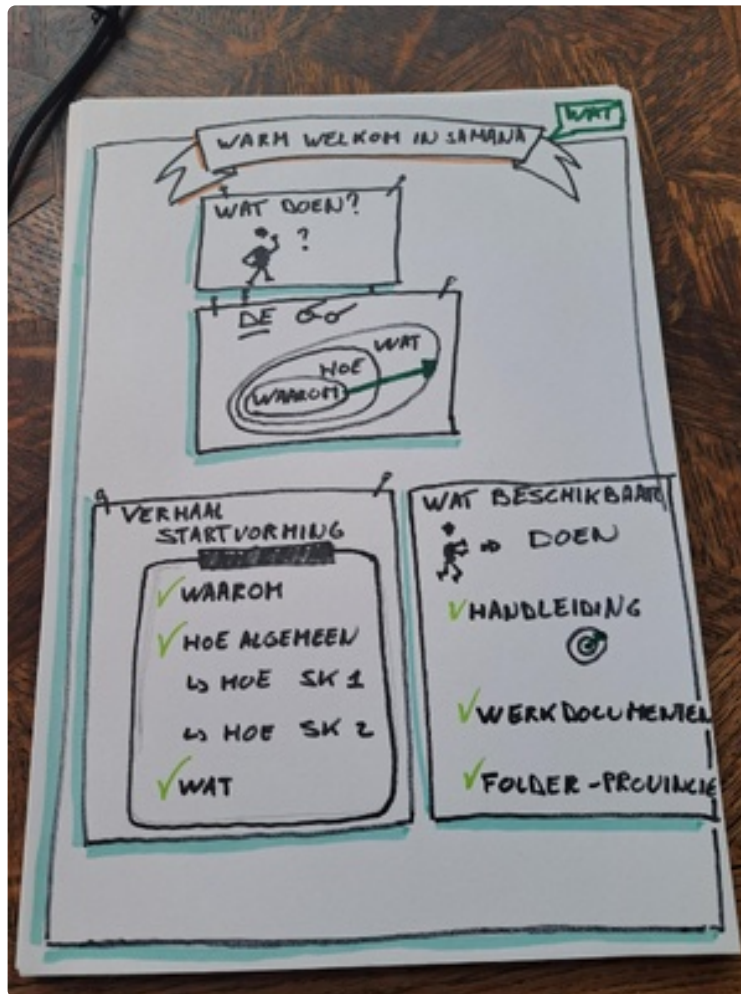 WARM WELKOM IN SAMANA
WAT
WAT DOEN?
?
DE
WAT
HOE
WAAROM
VERHAAL
STARTVORMING
WAAROM
HOE ALGEMEEN
↳ HOE SK 1
↳ HOE SK 2
WAT
WAT BESCHIKBAAR
⇨ DOEN
HANDLEIDING
WERKDOCUMENTEN
FOLDER-PROVINCIE